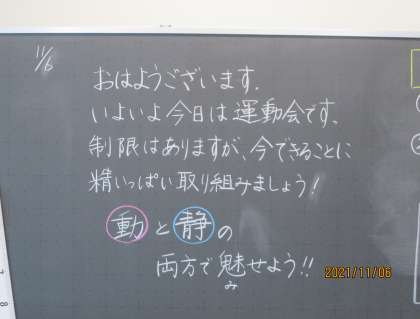 11/6
おはようございます.
いよいよ今日は運動会です、
制限はありますが、今できることに
精いっぱい取り組みましょう!
動と静の
両方で魅せよう!!
み
2021/11/06